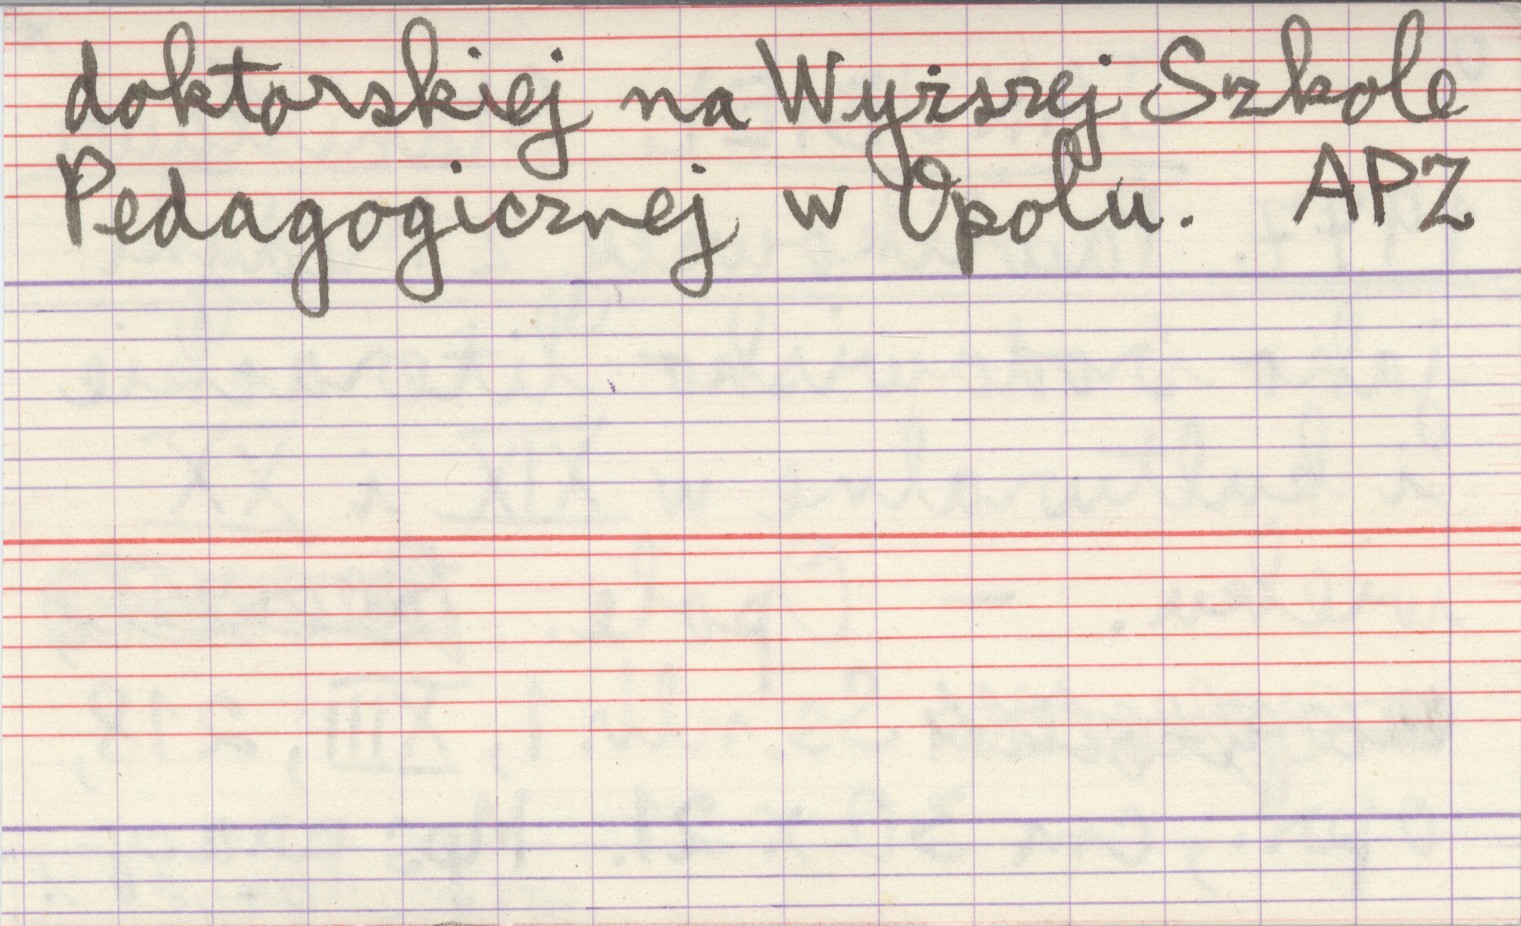 doktorskiej na Wyższej Szkole
Pedagogicznej w Opolu. APZ